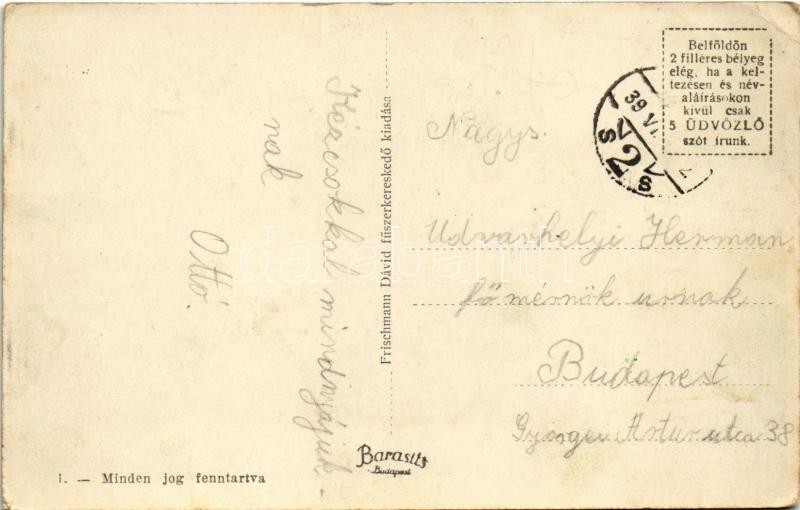 Kézcsokkal mindnyájuk-
nak
Ottó.
Frischmann Dávid fűszerkereskedő kiadása
Barasits
Budapest
1. — Minden jog fenntartva
Belföldön
2 filléres bélyeg
elég, ha a kel-
tezésen és név-
aláírásokon
kívül csak
5 ÜDVÖZLŐ
szót írunk.
39 VI.
S 2 S
Nagys.
Udvarhelyi Herman
főmérnök urnak
Budapest
Görgei Artur utca 38
darabanth